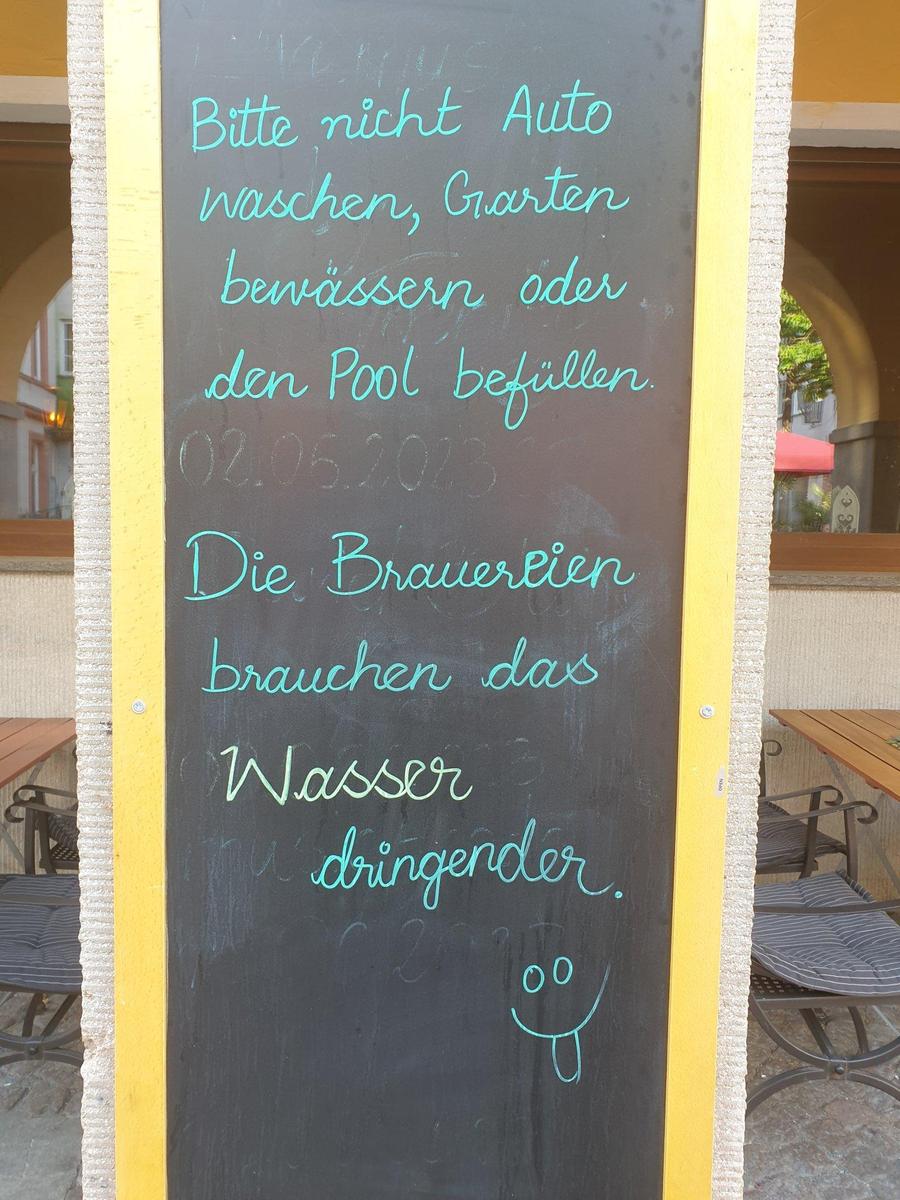 Bitte nicht Auto
waschen, Garten
bewässern oder
den Pool befüllen.
02.05.2023
Die Brauereien
brauchen das
Wasser
dringender.